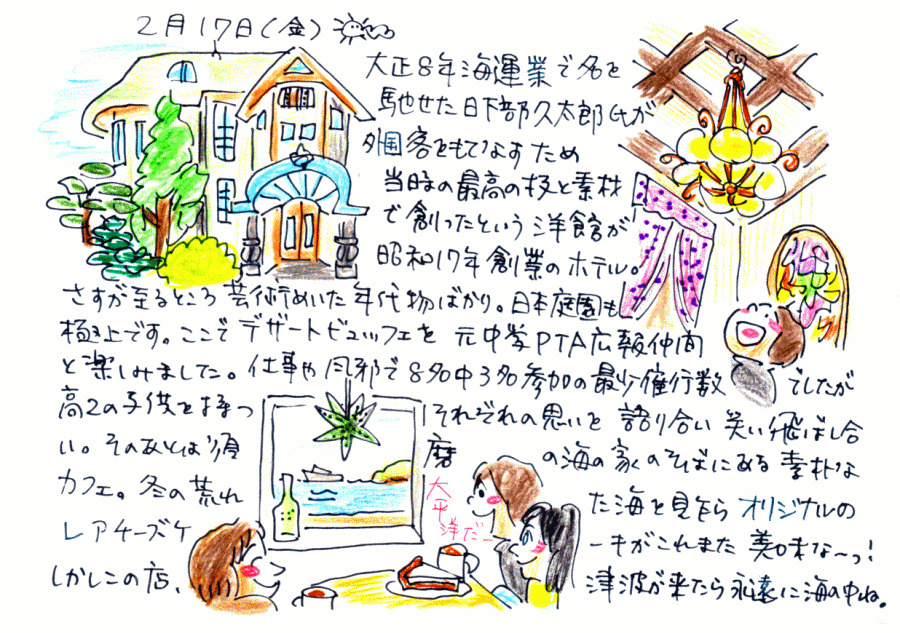 2月17日(金)
大正8年海運業で名を
馳せた日下部久太郎氏が
外国客をもてなすため
当時の最高の技と素材
で創ったという洋館が
昭和17年創業のホテル。
さすが至るところ芸術めいた年代物ばかり。日本庭園も
極上です。ここでデザートビュッフェを元中学PTA広報仲間
と楽しみました。仕事や風邪で8名中3名参加の最少催行数でしたが
高2の子供を持つそれぞれの思いを語り合い笑い飛ばし合
い。そのあとは須磨の海の家のそばにある素朴な
カフェ。冬の荒れた海を見ながらオリジナルの
レアチーズケーキがこれまた美味な〜っ!
しかしこの店、津波が来たら永遠に海の中ね。
太平洋だー